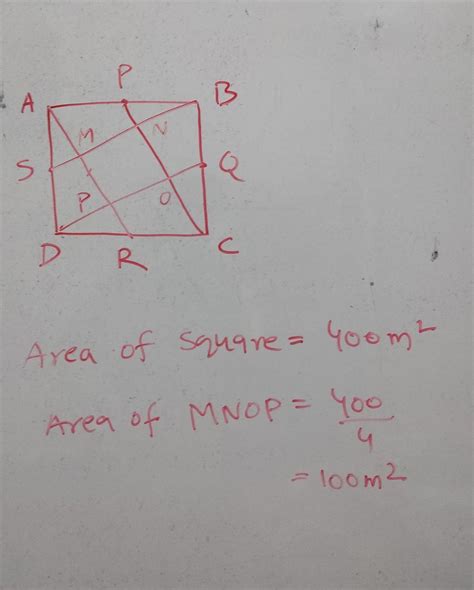 P
A B
M N
S Q
P O
D R C
Area of Square = 400m²
Area of MNOP = 400
4
= 100m²